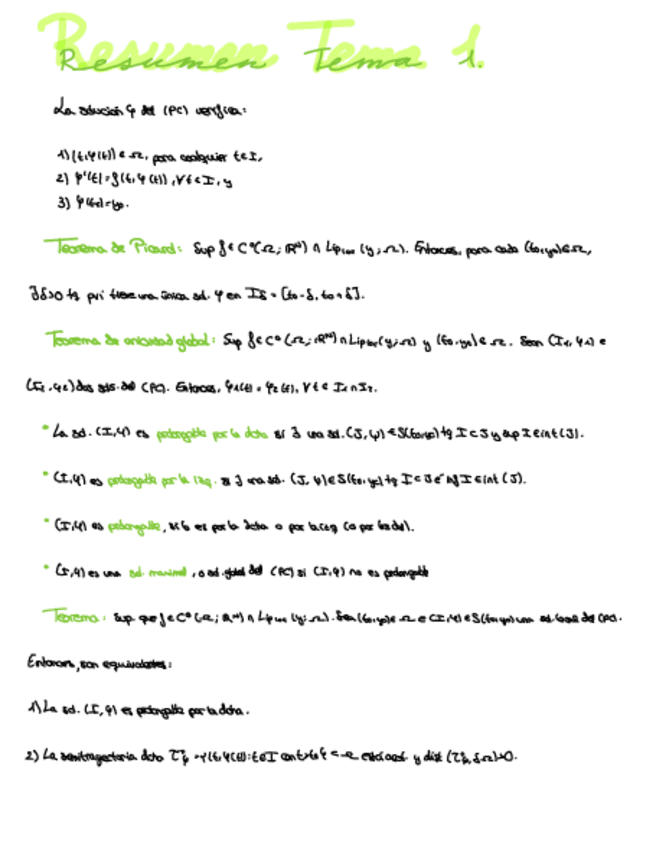 Resumen Tema 1.
La solución φ del (PC) verifica:
1) (t, φ(t)) ∈ Ω, para cualquier t ∈ I,
2) φ'(t) = f(t, φ(t)), ∀t ∈ I, y
3) φ(t₀) = y₀.
Teorema de Picard: Sup f ∈ C⁰(Ω; ℝᴺ) ∩ Lip_loc(y; Ω). Entonces, para cada (t₀, y₀) ∈ Ω,
∃δ>0 tq pvi tiene una única sol. φ en Iδ = [t₀ - δ, t₀ + δ].
Teorema de unicidad global: Sup f ∈ C⁰(Ω; ℝᴺ) ∩ Lip_loc(y; Ω) y (t₀, y₀) ∈ Ω. Sean (I₁, φ₁) e
(I₂, φ₂) dos sols. del (PC). Entonces, φ₁(t) = φ₂(t), ∀t ∈ I₁ ∩ I₂.
• La sol. (I, φ) es prolongable por la dcha si ∃ una sol. (J, ψ) ∈ S(t₀, y₀) tq I ⊂ J y sup I ∈ int(J).
• (I, φ) es prolongable por la izq. si ∃ una sol. (J, ψ) ∈ S(t₀, y₀) tq I ⊂ J e inf I ∈ int(J).
• (I, φ) es prolongable, si lo es por la dcha o por la izq (o por los dos).
• (I, φ) es una sol. maximal, o sol. global del (PC) si (I, φ) no es prolongable
Teorema: Sup que f ∈ C⁰(Ω; ℝᴺ) ∩ Lip_loc(y; Ω). Sean (t₀, y₀) ∈ Ω e (I, φ) ∈ S(t₀, y₀) una sol. local del (PC).
Entonces, son equivalentes:
1) La sol. (I, φ) es prolongable por la dcha.
2) La semitrayectoria dcha = {(t, φ(t)): t ∈ I con t > t₀} ⊂ Ω está acot. y dist >0.